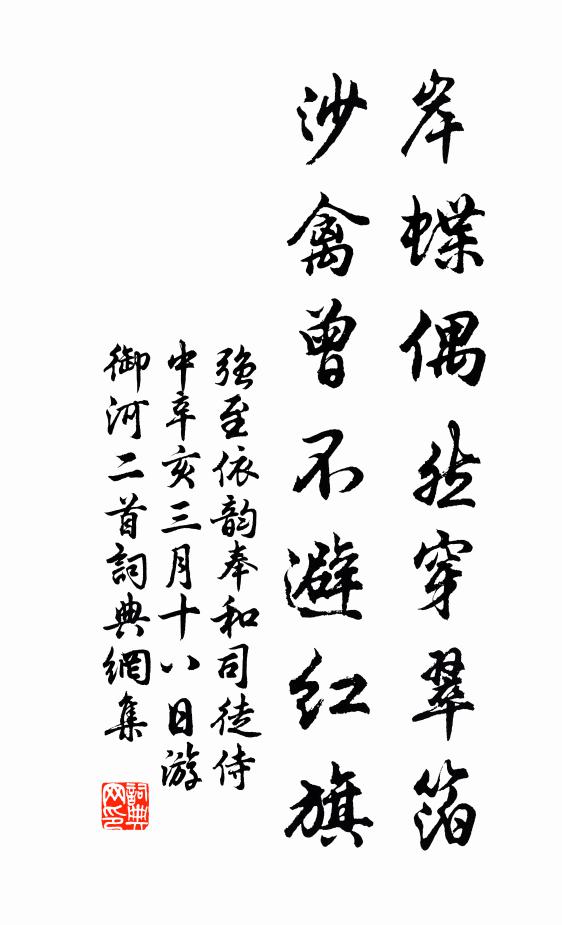 岸蝶偶然穿翠箔
沙禽曾不避红旗
强至依韵奉和司徒侍
中辛亥三月十八日游
御河二首詞典網集
詞典网印